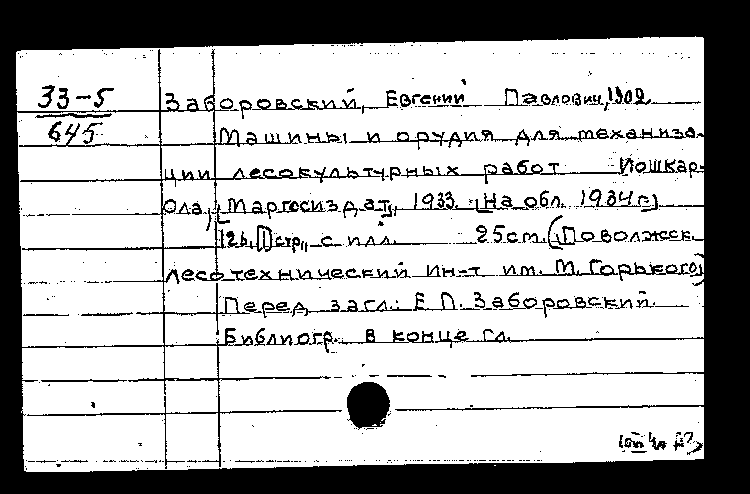 33-5
645
Заборовский, Евгений Павлович, 1902.
Машины и орудия для механиза-
ции лесокультурных работ Йошкар-
Ола, [Маргосиздат], 1933. [На обл. 1934 г.]
с илл. 25 cm. (Поволжск.
лесотехнический ин-т им. М. Горького)
Перед загл.: Е. П. Заборовский.
Библиогр. в конце гл.